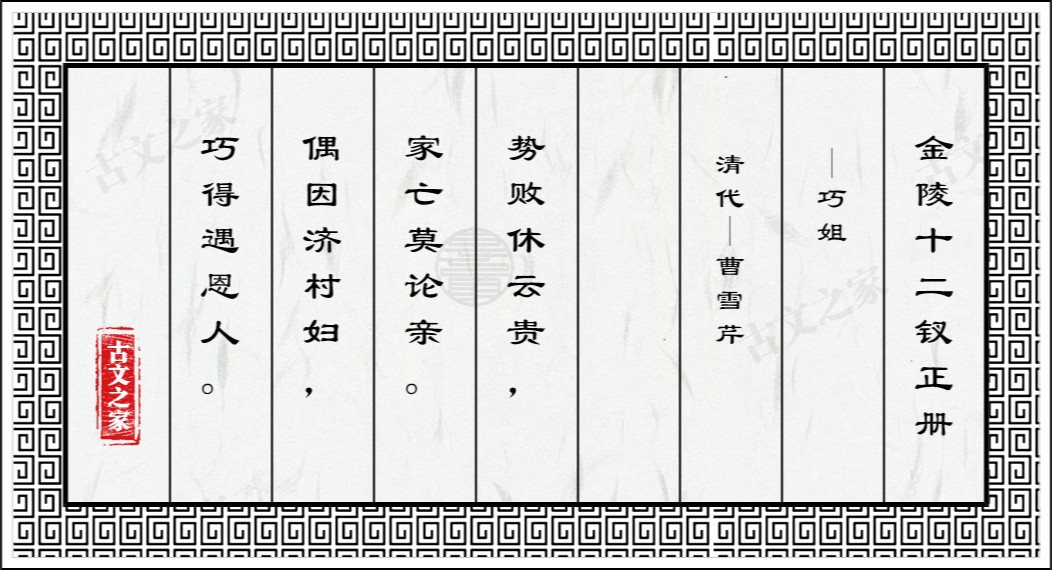 金陵十二钗正册
—巧姐
清代—曹雪芹
势败休云贵，
家亡莫论亲。
偶因济村妇，
巧得遇恩人。
古文之家
古文之家
古文之家